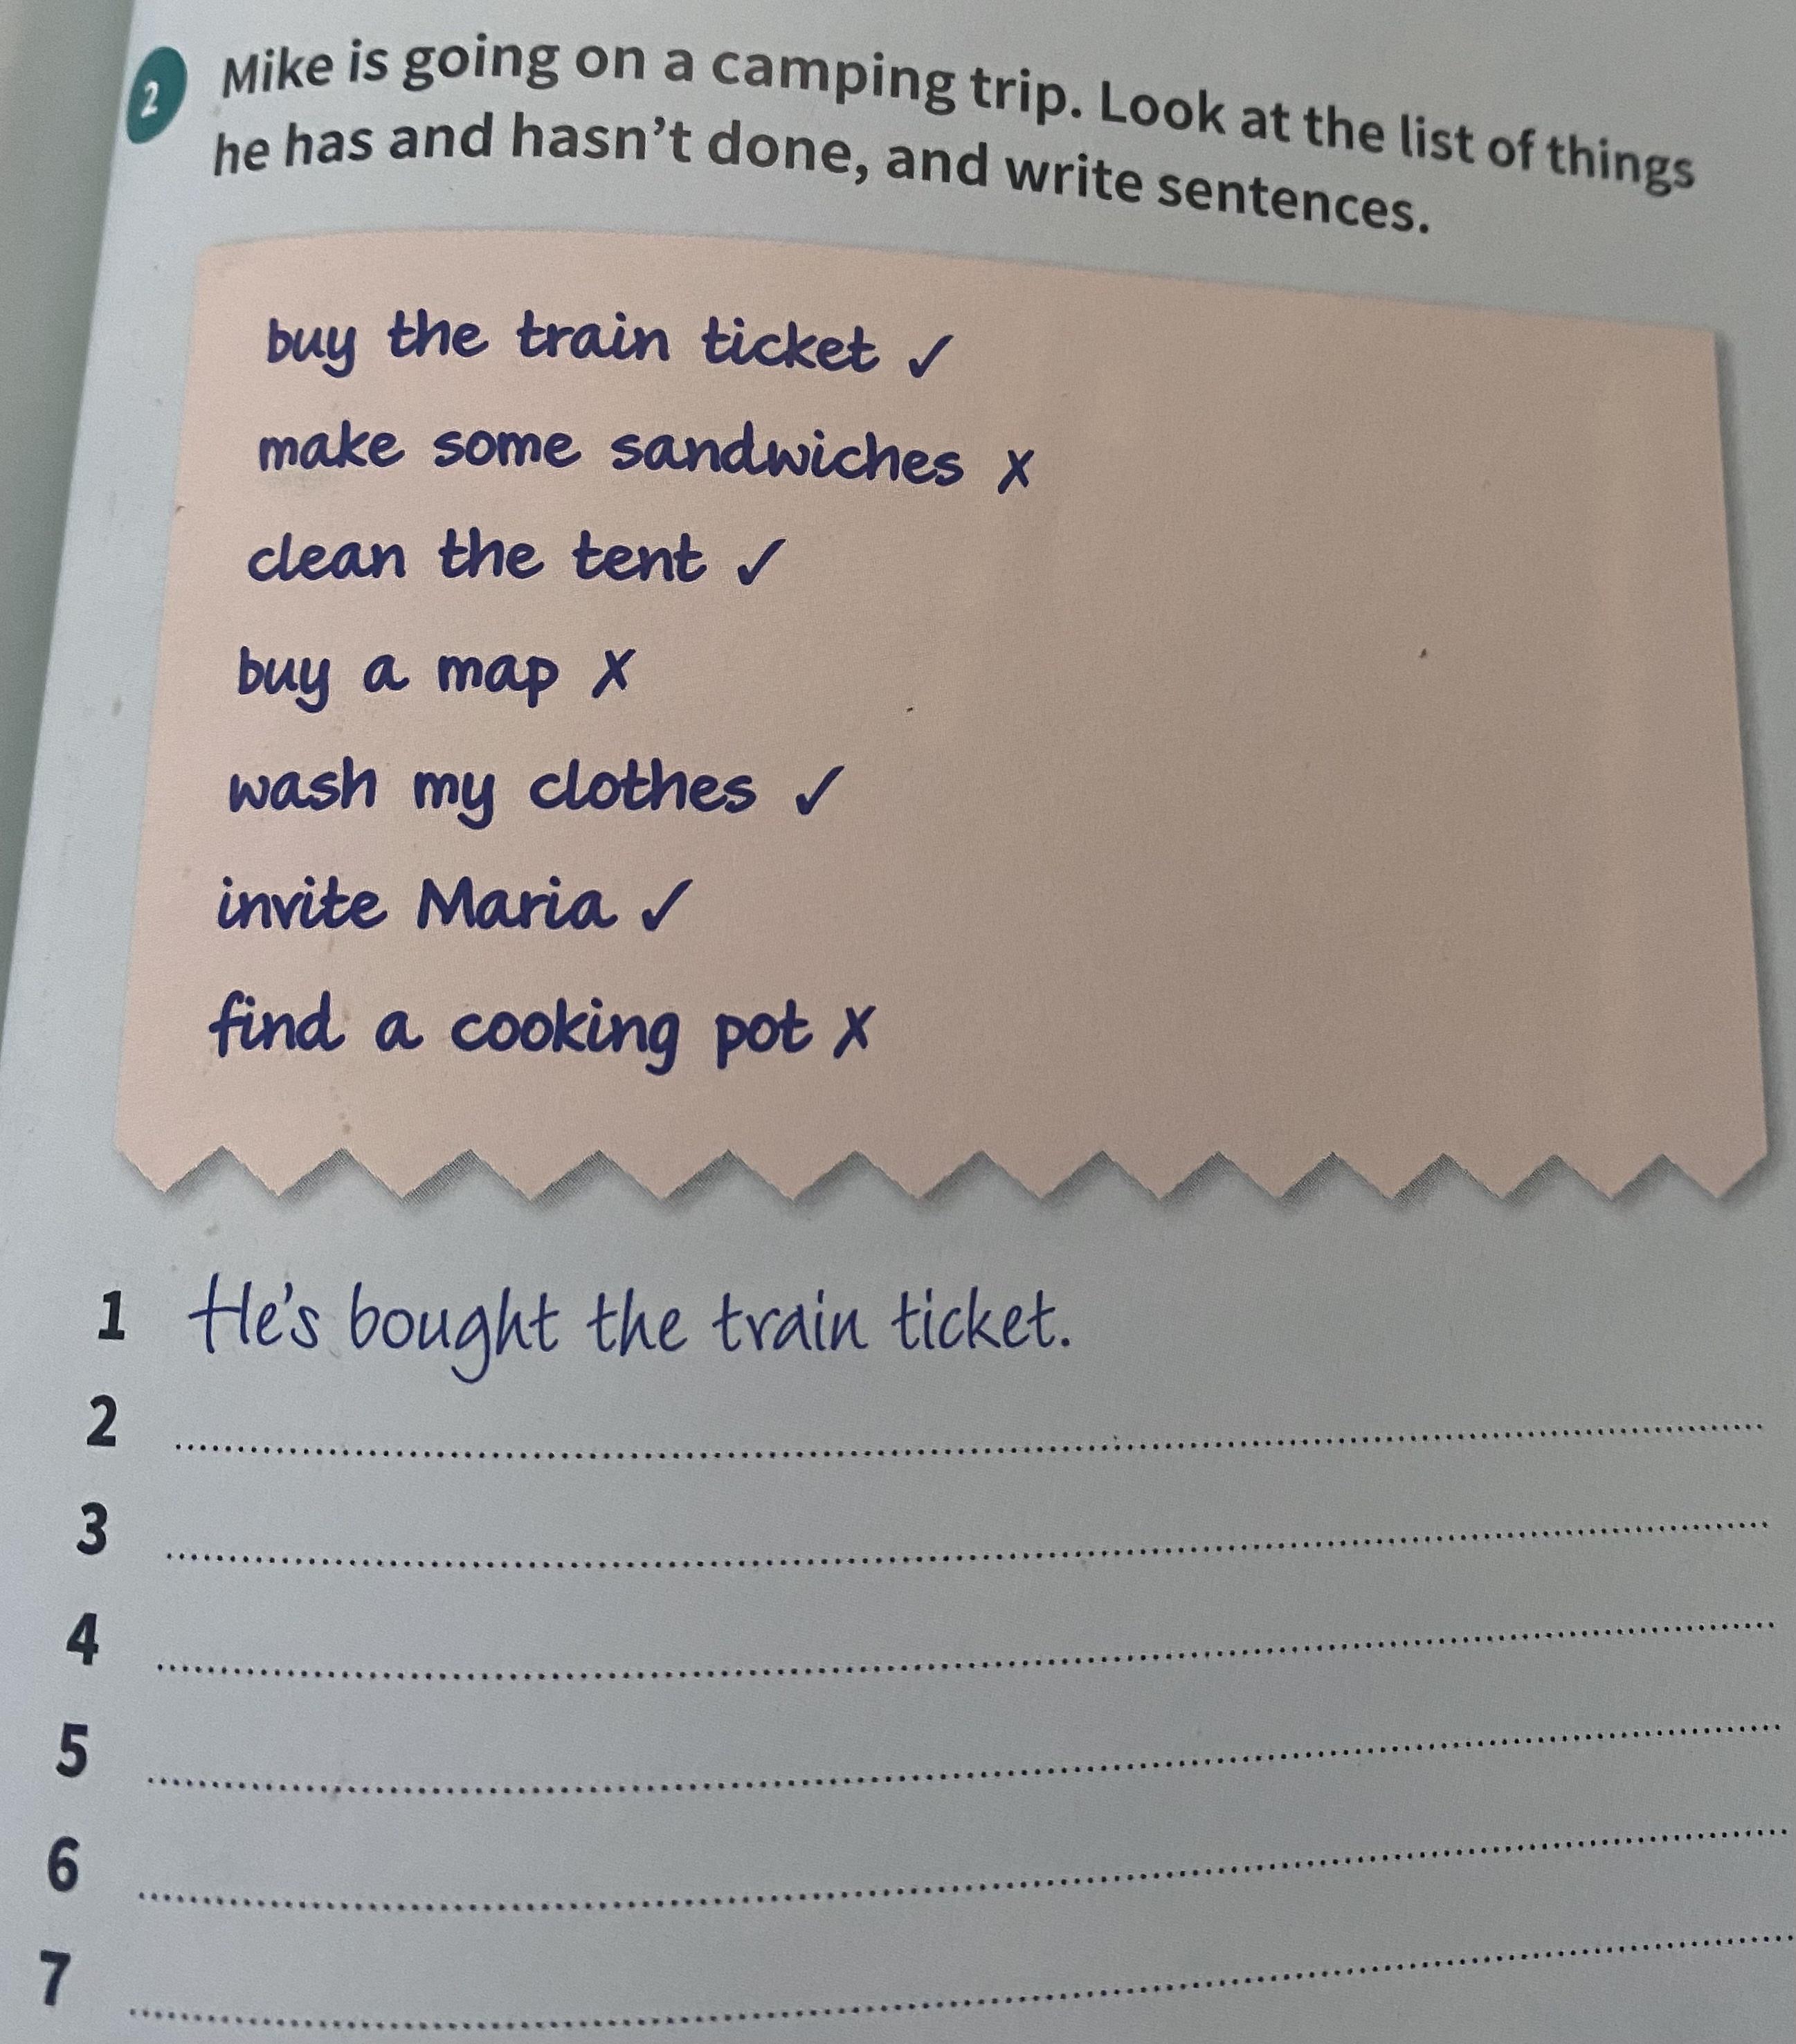 2 Mike is going on a camping trip. Look at the list of things
he has and hasn't done, and write sentences.
buy the train ticket ✓
make some sandwiches ✗
clean the tent ✓
buy a map ✗
wash my clothes ✓
invite Maria ✓
find a cooking pot ✗
1 He's bought the train ticket.
2
3
4
5
6
7